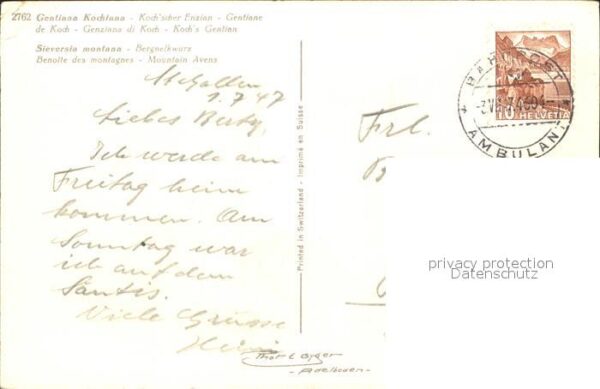 2762 Gentiana Kochiana - Koch'scher Enzian - Gentiane
de Koch - Genziana di Koch - Koch's Gentian
Sieversia montana - Bergnelkwurz
Benoîte des montagnes - Mountain Avens
St. Gallen
1.7.47
Liebes Berty,
Ich werde am
Freitag heim
kommen. Am
Sonntag war
ich auf dem
Säntis.
Viele Grüsse
Printed in Switzerland - Imprimé en Suisse
Frl.
BAHNPOST
AMBULANT
10 HELVETIA
privacy protection
Datenschutz
Gyger
- Adelboden -